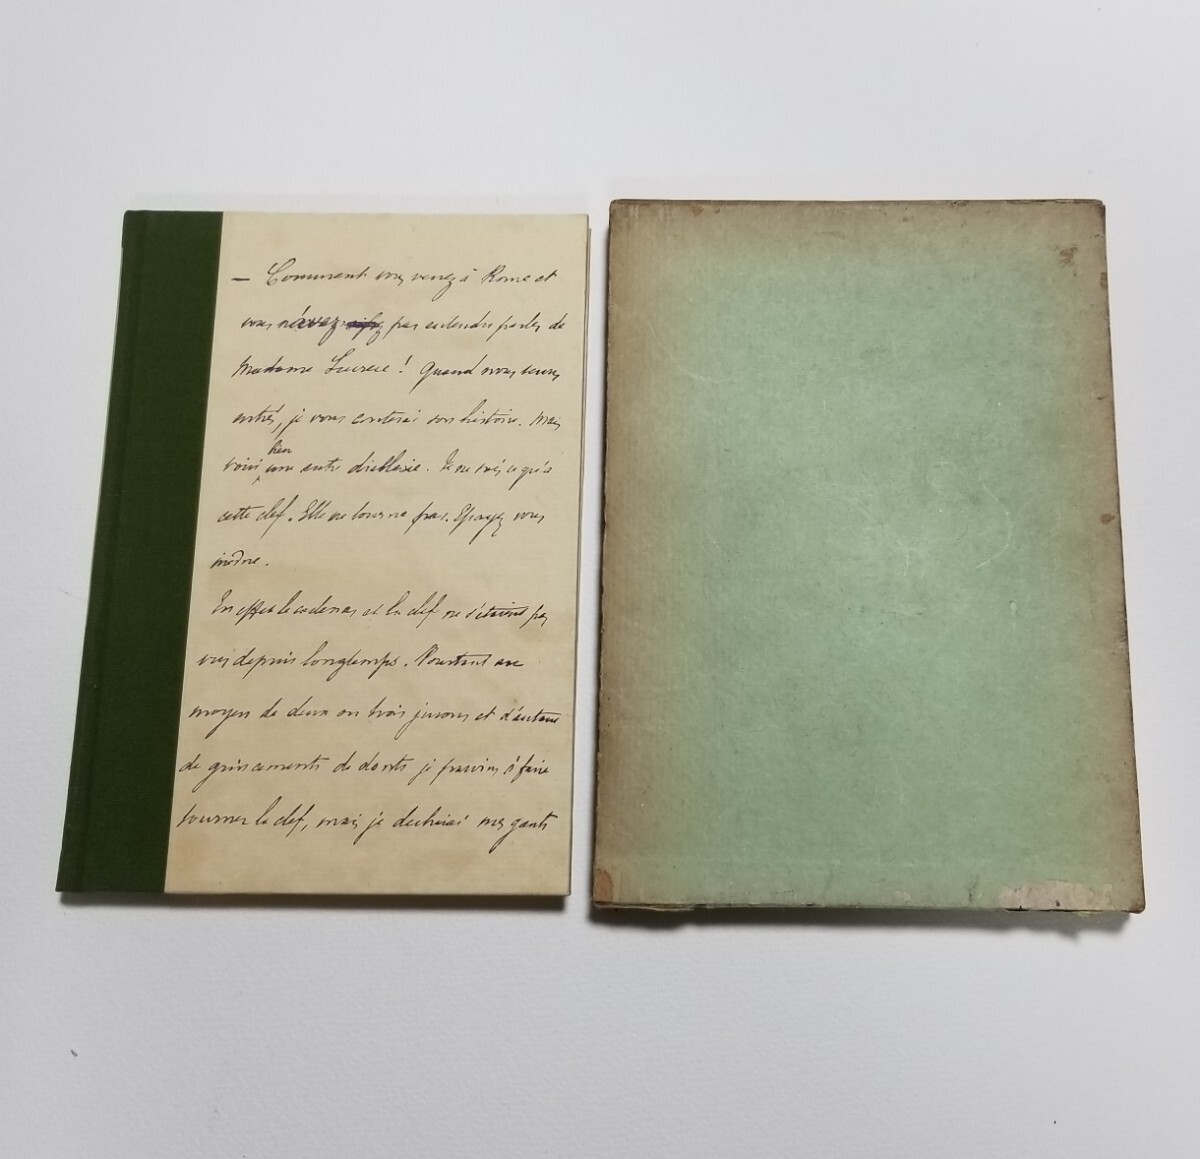 — Comment vous venez à Rome et
vous n'avez pas entendu parler de
Madame Lucrèce ! Quand nous serons
entrés, je vous conterai son histoire. Mais
voici bien une autre diablerie. Je ne sais ce qu'a
cette clef. Elle ne tourne pas. Essayez vous
même.
En effet le cadenas et la clef ne s'étaient pas
vus depuis longtemps. Pourtant au
moyen de deux ou trois jurons et d'autant
de grincements de dents je parvins à faire
tourner la clef, mais je déchirai mes gants